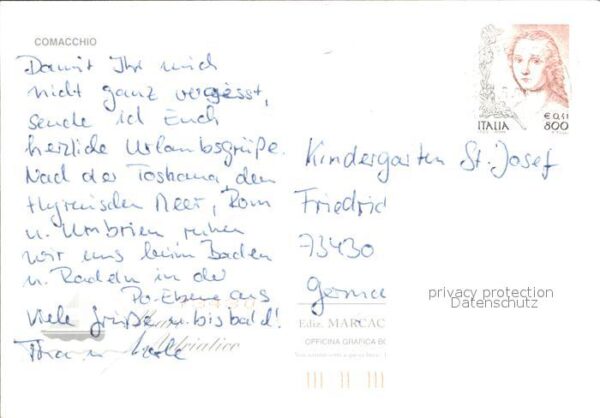 COMACCHIO
Damit Ihr mich
nicht ganz vergesst,
sende ich Euch
herzliche Urlaubsgrüße.
Nach der Toskana, dem
Thyrrenischen Meer, Rom
u. Umbrien ruhen
wir uns beim Baden
u. Radeln in der
Po-Ebene aus
Viele Grüße u. bis bald!
Adriatico
ITALIA
€ 0,41
800
Kindergarten St. Josef
Friedric
73430
Germa
privacy protection
Datenschutz
Ediz. MARCAC
OFFICINA GRAFICA BO